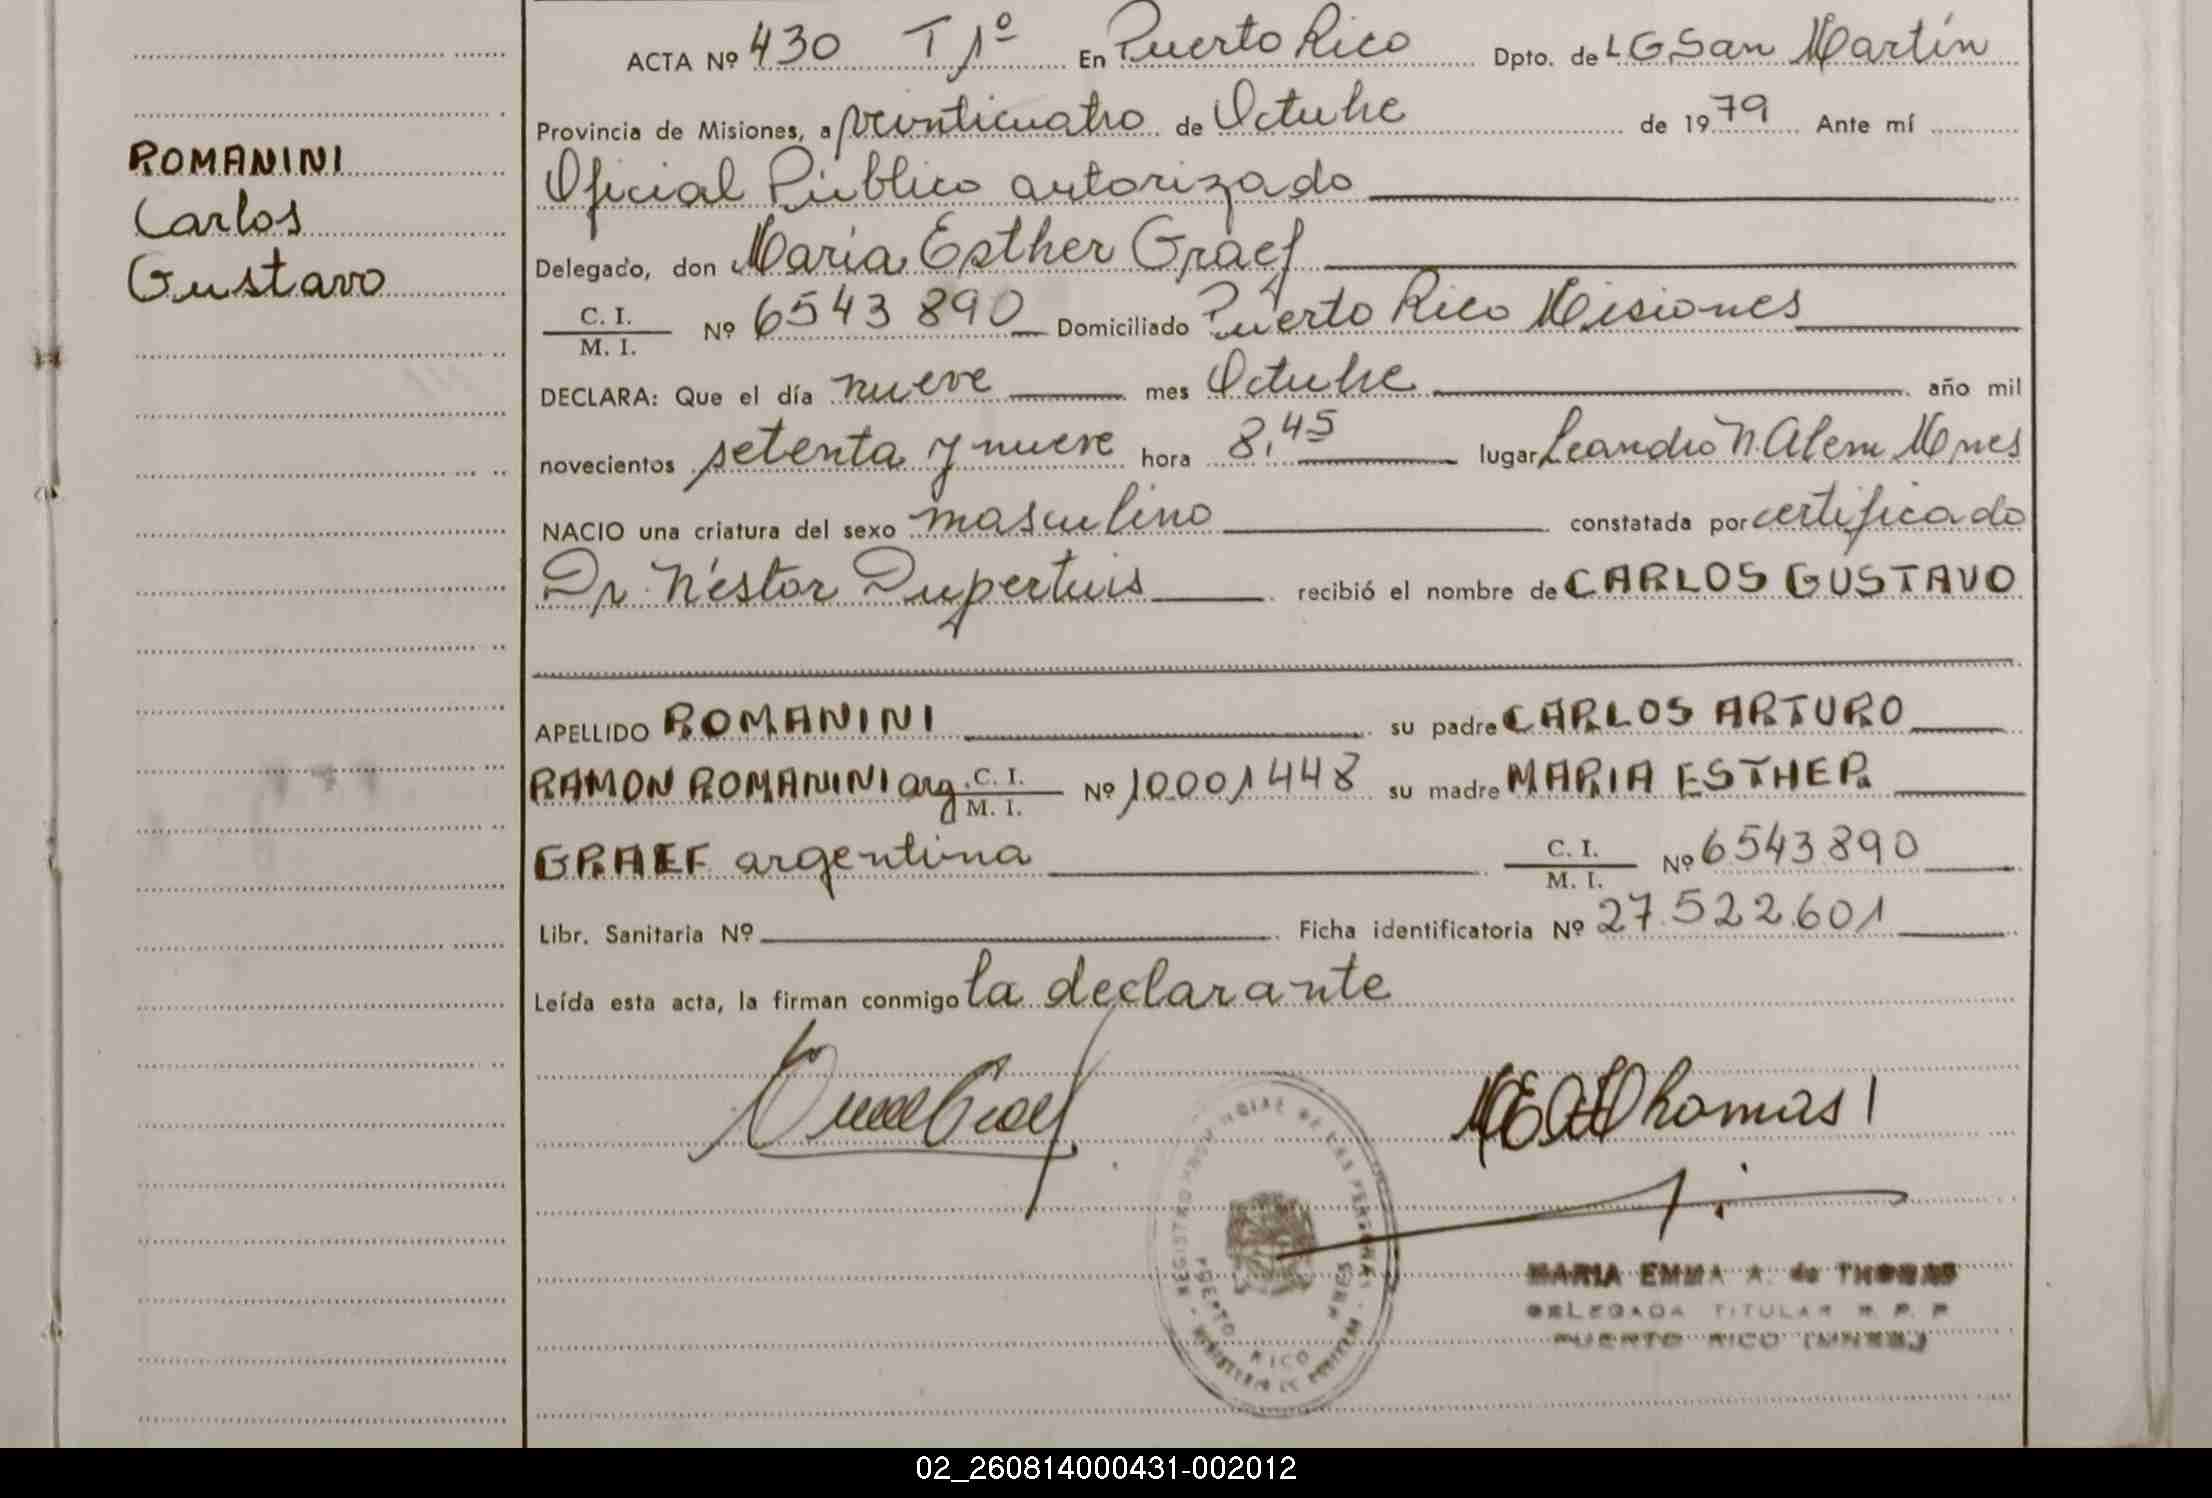 ACTA Nº 430 T 1º En Puerto Rico Dpto. de L G San Martín
Provincia de Misiones, a veinticuatro de Octubre de 1979 Ante mí
ROMANINI
Carlos
Gustavo
Oficial Público autorizado
Delegado, don María Esther Graef
C. I.
M. I. Nº 6543890 Domiciliado Puerto Rico Misiones
DECLARA: Que el día nueve mes Octubre año mil
novecientos setenta y nueve hora 8,45 lugar Leandro N. Alem Mnes
NACIO una criatura del sexo masculino constatada por certificado
Dr. Néstor Dupertuis recibió el nombre de CARLOS GUSTAVO
APELLIDO ROMANINI su padre CARLOS ARTURO
RAMON ROMANINI arg. C. I.
M. I. Nº 10001448 su madre MARIA ESTHER
GRAEF argentina C. I.
M. I. Nº 6543890
Libr. Sanitaria Nº Ficha identificatoria Nº 27.522.601
Leída esta acta, la firman conmigo la declarante
Thomas
MARIA EMMA A. de THOMAS
DELEGADA TITULAR R. P. P
PUERTO RICO (MNES.)
PUERTO RICO MNES
02_260814000431-002012